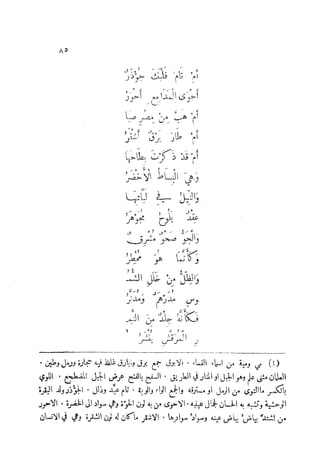 ٨٥
أم تام قلبك جؤذر
أحوى المدامع أحور
أم هب من مصر صبا
أم طار برق أشقر
أم قد ذكرت بطاحها
وهي البساط الأخضر
والنيل في لباتها
عقد يلوح مجوهر
والجو صحو مشرق
وكأنما هو ممطر
والظل من خلل الشمـ
وس مدرهم ومدنر
فكأنه جلد من النمـ
ر المرقش ينشر
(١) مي ومية من اسماء النساء . الابرق جمع برق وابارق غلظ فيه حجارة ورمل وطين .
العلمان مثنى علم وهو الجبل او المنار في الطريق . السفح بالفتح عرض الجبل المضطجع . اللوى
بالكسر ما التوى من الرمل او مسترقه والجمع الواء والوية . تام عبد وذلل . الجؤذر ولد البقرة
الوحشية وتشبه به الحسان لجمال عينيه . الاحوى من به لون الحوة وهي سواد الى الخضرة . الاحور
من اشتد بياض بياض عينه وسواد سوادها . الاشقر ما كان له لون الشقرة وهي في الانسان